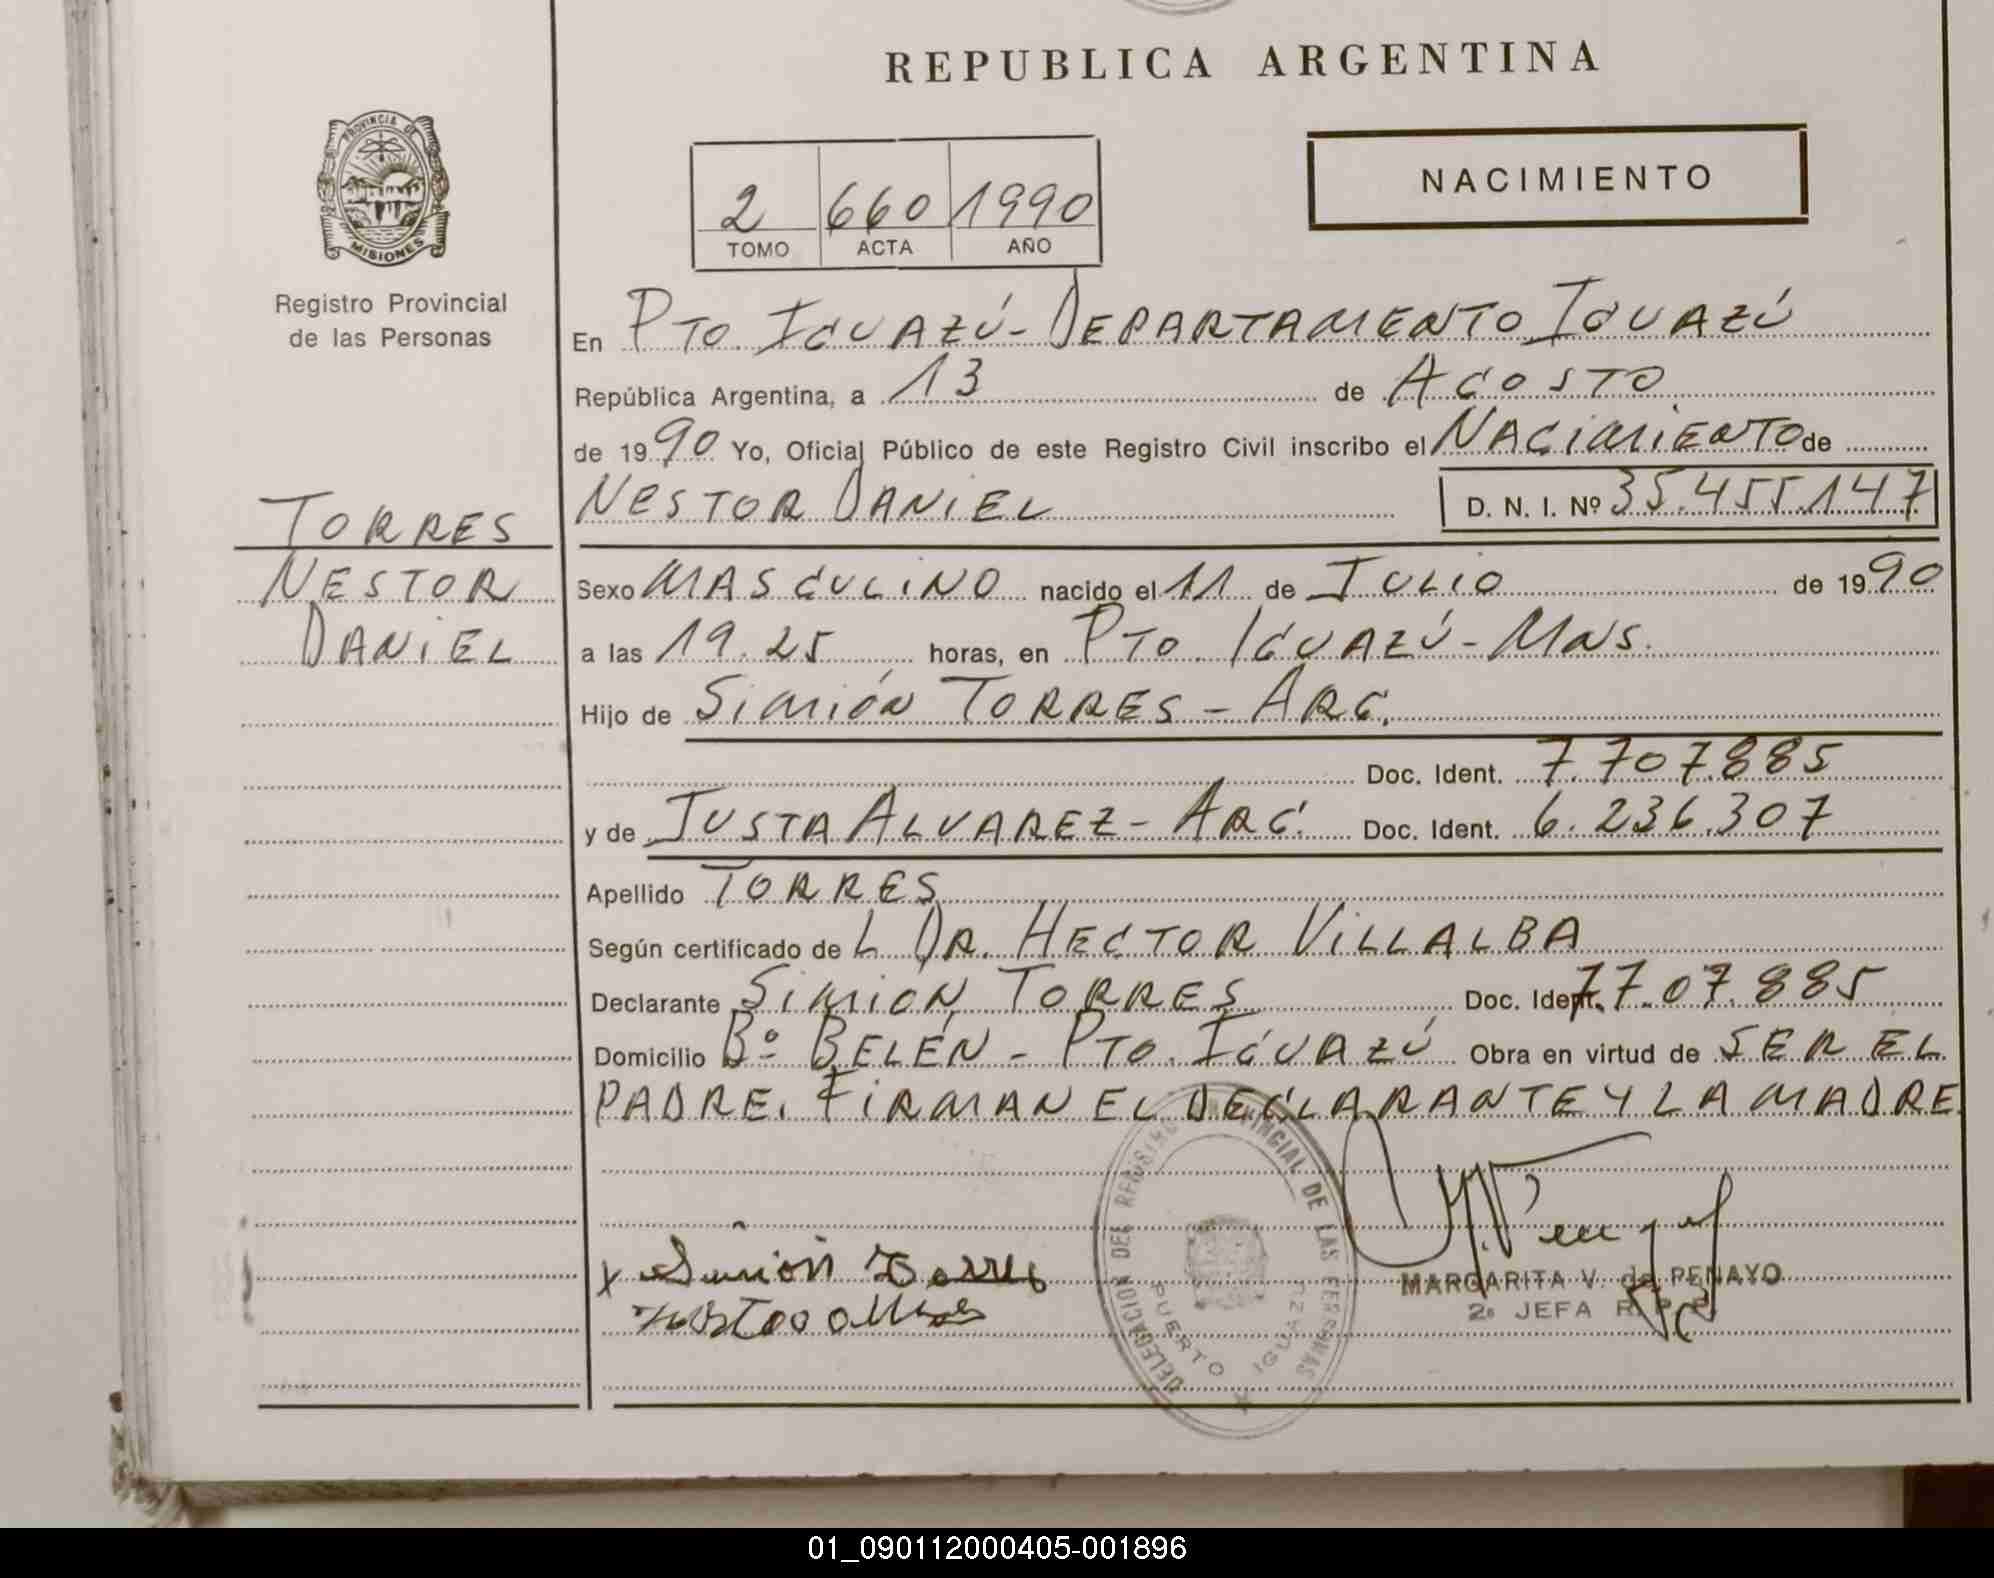 REPUBLICA ARGENTINA
PROVINCIA DE
MISIONES
Registro Provincial
de las Personas
NACIMIENTO
2 660 1990
TOMO ACTA AÑO
En Pto. Iguazú - Departamento Iguazú
República Argentina, a 13 de Agosto
de 1990 Yo, Oficial Público de este Registro Civil inscribo el Nacimiento de
Nestor Daniel D. N. I. Nº 35.455.147
Torres
Nestor
Daniel
Sexo Masculino nacido el 11 de Julio de 1990
a las 19.25 horas, en Pto. Iguazú - Mns.
Hijo de Simión Torres - Arg.
Doc. Ident. 7.707.885
y de Justa Alvarez - Arg. Doc. Ident. 6.236.307
Apellido Torres
Según certificado de L Dr. Hector Villalba
Declarante Simion Torres Doc. Ident. 7.707.885
Domicilio Bº Belén - Pto. Iguazú Obra en virtud de ser el
padre. Firman el declarante y la madre.
x Simión Torres
DELEGACION DEL REGISTRO PROVINCIAL DE LAS PERSONAS
PUERTO IGUAZU
MARGARITA V. de PENAYO
2º JEFA R. P. P.
01_090112000405-001896